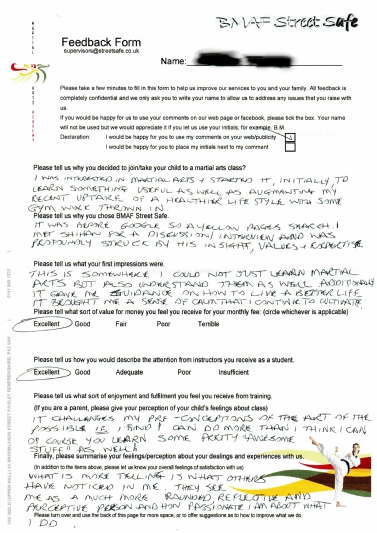 BMAF Street Safe
Feedback Form
supervisors@streetsafe.co.uk
Name:
Please take a few minutes to fill in this form to help us improve our services to you and your family. All feedback is
completely confidential and we only ask you to write your name to allow us to address any issues that you raise with
us.
If you would be happy for us to use your comments on our web page or facebook, please tick the box. Your name
will not be used but we would appreciate it if you let us use your initials; for example, B.M.
Declaration: I would be happy for you to use my comments on your web/publicity
I would be happy for you to place my initials next to my comment
Please tell us why you decided to join/take your child to a martial arts class?
I WAS INTERESTED IN MARTIAL ARTS + STARTED IT, INITIALLY TO
LEARN SOMETHING USEFUL AS WELL AS AUGMENTING MY
RECENT UPTAKE OF A HEALTHIER LIFE STYLE WITH SOME
GYM WORK THROWN IN.
Please tell us why you chose BMAF Street Safe.
IT WAS BEFORE GOOGLE SO A YELLOW PAGES SEARCH. I
MET SHIHAN FOR A DISCUSSION / INTERVIEW AND WAS
PROFOUNDLY STRUCK BY HIS INSIGHT, VALUES + EXPERTISE
Please tell us what your first impressions were.
THIS IS SOMEWHERE I COULD NOT JUST LEARN MARTIAL
ARTS BUT ALSO UNDERSTAND THEM AS WELL. ADDITIONALLY
IT GAVE ME GUIDANCE ON HOW TO LIVE A BETTER LIFE
IT BROUGHT ME A SENSE OF CALM THAT I CONTINUE TO CULTIVATE.
Please tell us what sort of value for money you feel you receive for your monthly fee: (circle whichever is applicable)
Excellent Good Fair Poor Terrible
Please tell us how you would describe the attention from instructors you receive as a student.
Excellent Good Adequate Poor Insufficient
Please tell us what sort of enjoyment and fulfilment you feel you receive from training.
(If you are a parent, please give your perception of your child's feelings about class)
IT CHALLENGES MY PRE-CONCEPTIONS OF THE ART OF THE
POSSIBLE IE I FIND I CAN DO MORE THAN I THINK I CAN
OF COURSE YOU LEARN SOME PRETTY "AWESOME
STUFF" AS WELL!
Finally, please summarise your feelings/perception about your dealings and experiences with us.
(In addition to the items above, please let us know your overall feelings of satisfaction with us)
WHAT IS MORE TELLING IS WHAT OTHERS
HAVE NOTICED IN ME. THEY SEE
ME AS A MUCH MORE ROUNDED REFLECTIVE AND
PERCEPTIVE PERSON AND HOW PASSIONATE I AM ABOUT WHAT
Please turn over and use the back of this page for more space, or to offer suggestions as to how to improve what we do.
I DO.